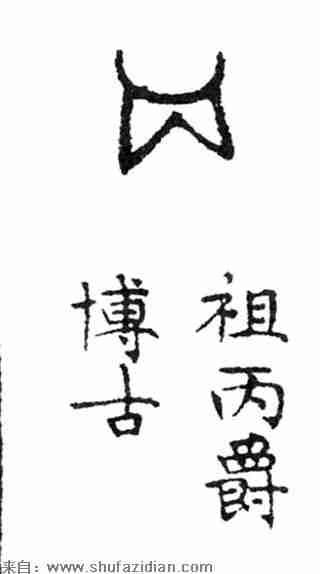 祖丙爵
博古
来自：www.shufazidian.com